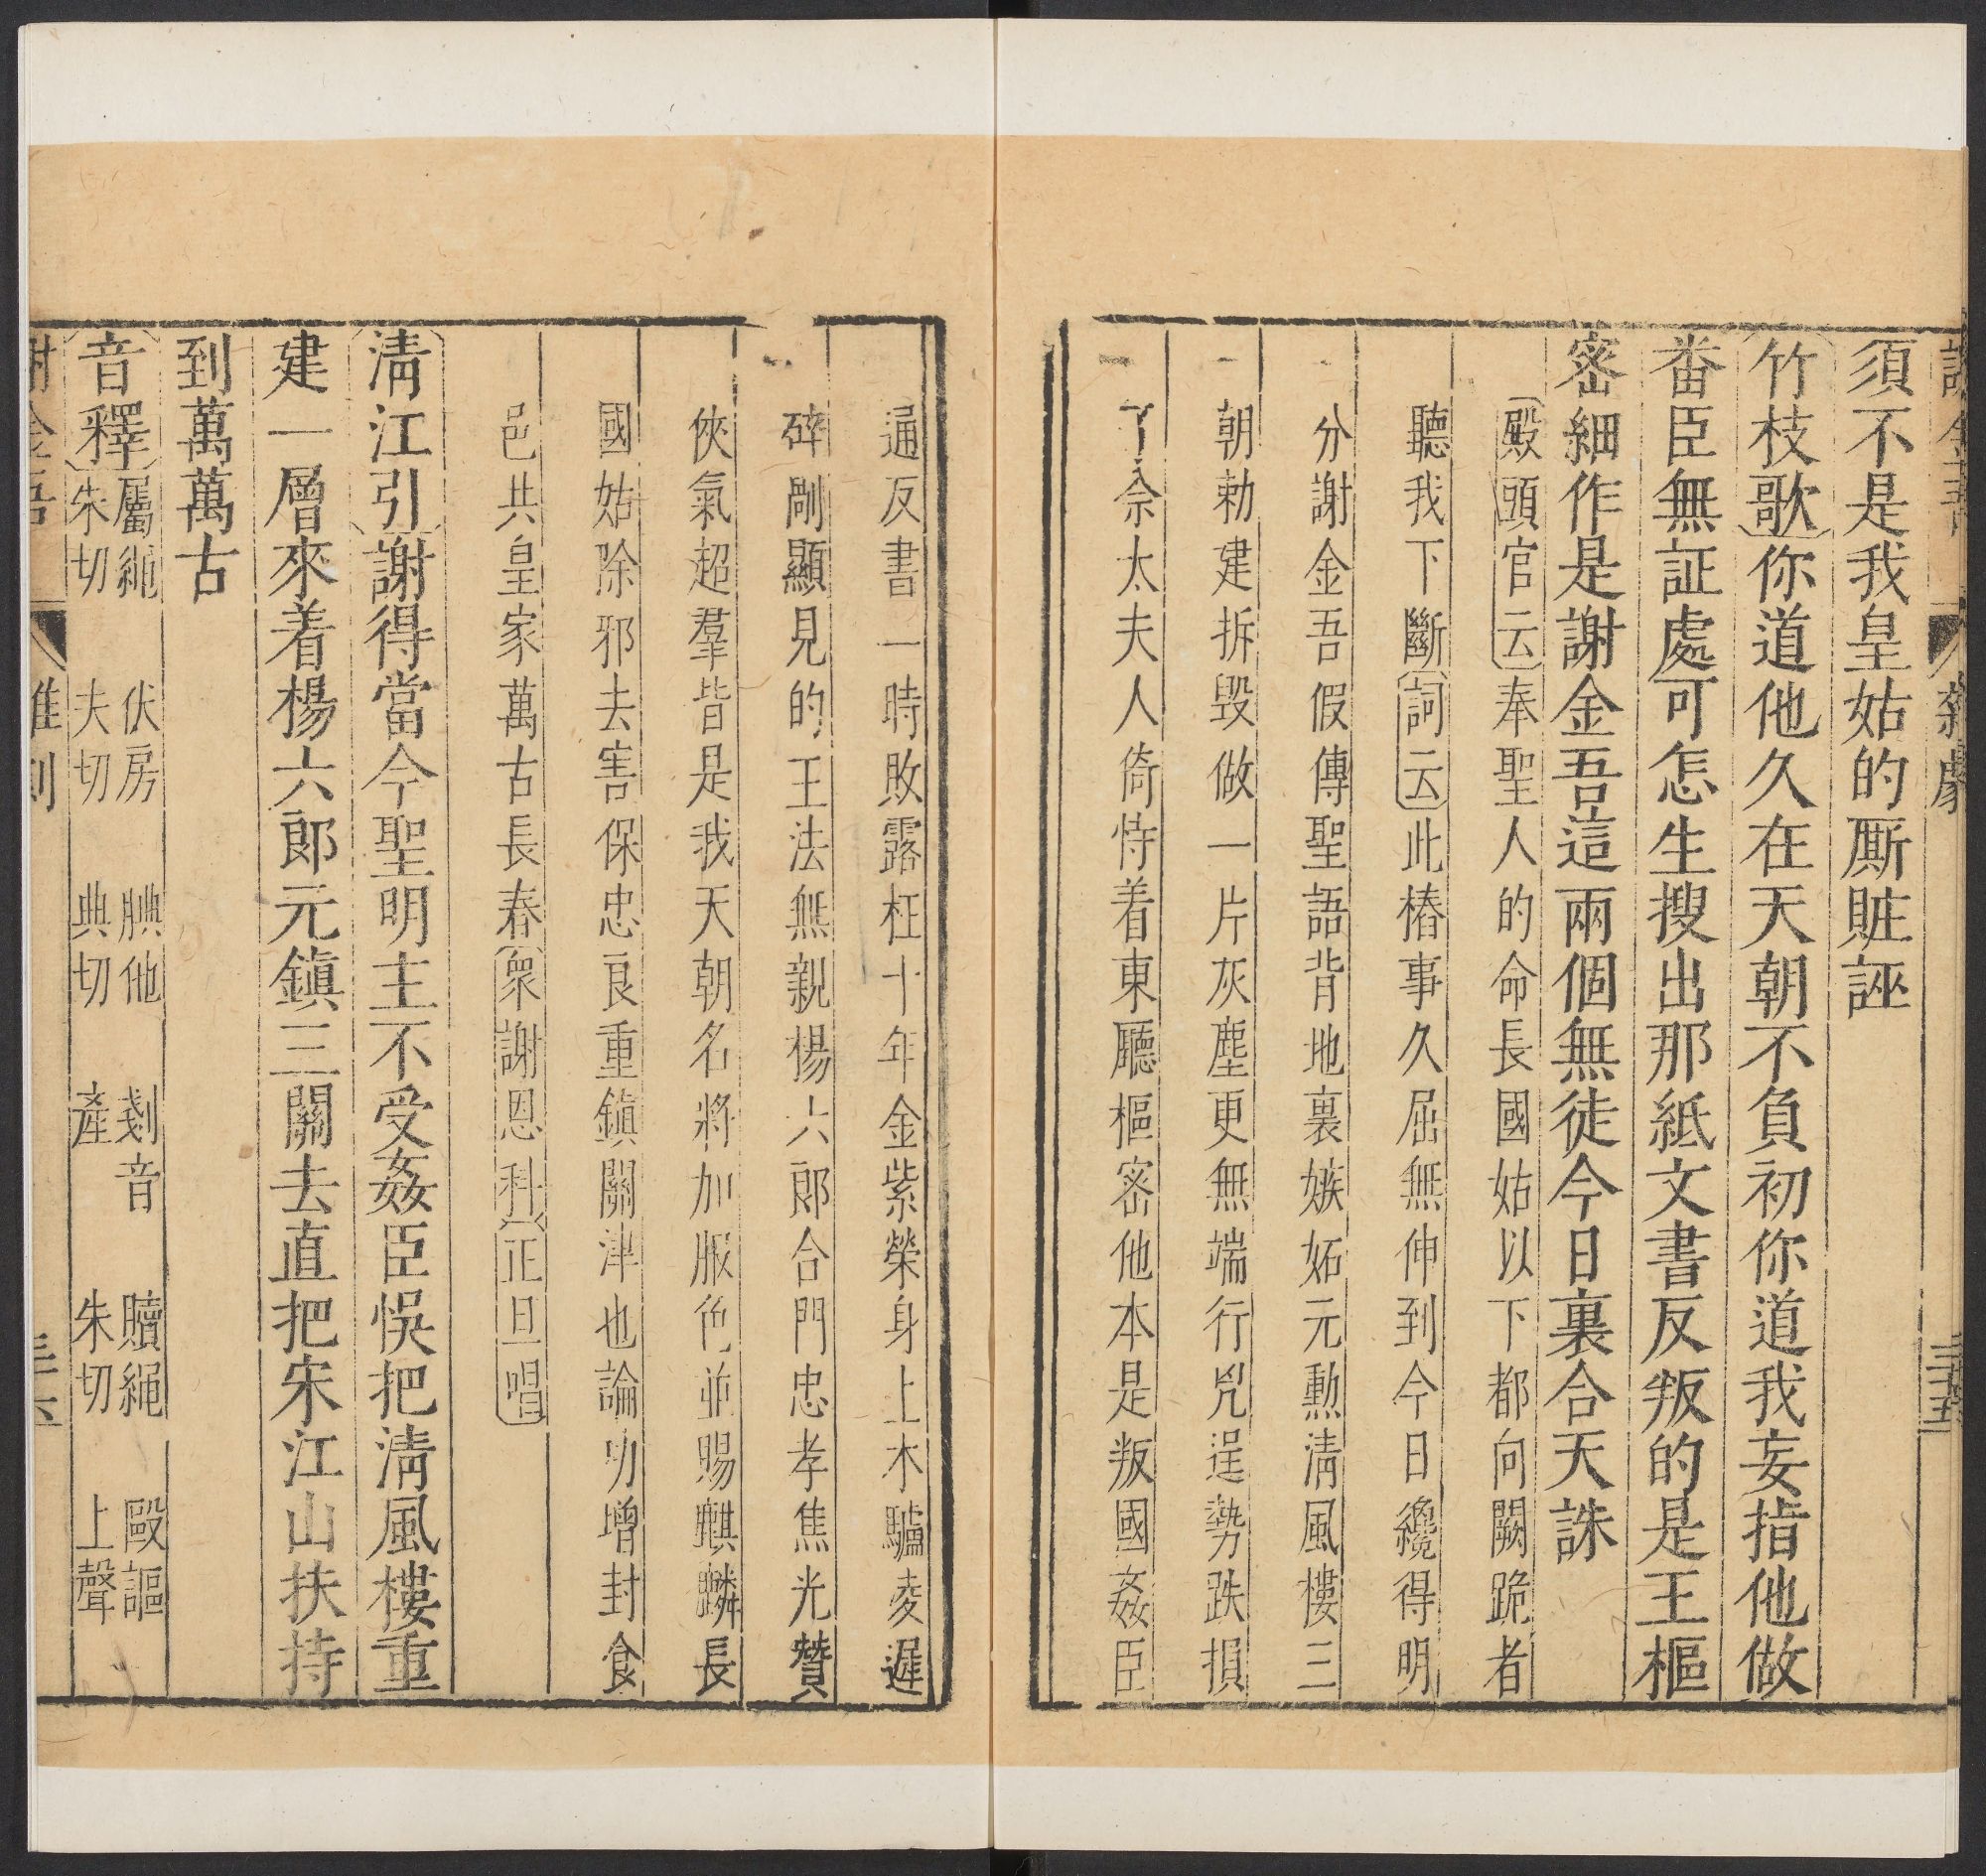 須不是我皇姑的厮賍誣
竹枝歌你道他久在天朝不負初你道我妄指他做
番臣無証處可怎生搜出那紙文書反叛的是王樞
密細作是謝金吾這兩個無徒今日裏合天誅
殿頭官云奉聖人的命長國姑以下都向闕跪者
聽我下斷詞云此樁事久屈無伸到今日纔得明
分謝金吾假傳聖語背地裏嫉妬元勲清風樓三
朝勅建拆毀做一片灰塵更無端行兇逞勢跌損
了佘太夫人倚恃着東廳樞密他本是叛國姦臣
通反書一時敗露枉十年金紫榮身上木驢凌遲
碎剮顯見的王法無親楊六郎合門忠孝焦光贊
俠氣超羣皆是我天朝名將加服色並賜麒麟長
國姑除邪去害保忠良重鎮關津也論功增封食
邑共皇家萬古長春衆謝恩科正旦唱
清江引謝得當今聖明主不受姦臣悞把清風樓重
建一層來着楊六郎元鎮三關去直把宋江山扶持
到萬萬古
音釋屬繩朱切 伏房夫切 腆他典切 剗音產 贖繩朱切 毆謳上聲